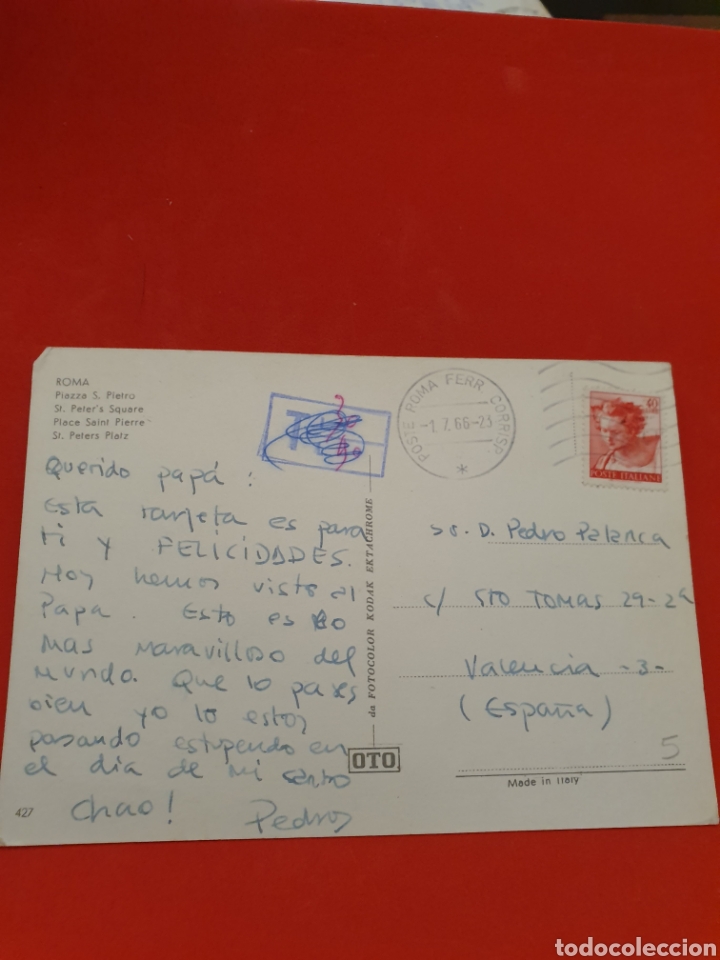 ROMA
Piazza S. Pietro
St. Peter's Square
Place Saint Pierre
St. Peters Platz
Querido papá:
Esta tarjeta es para
ti y FELICIDADES.
Hoy hemos visto al
Papa. Esto es lo
mas maravilloso del
mundo. Que lo pases
bien yo lo estoy
pasando estupendo en
el dia de mi santo
Chao! Pedro
427
da FOTOCOLOR KODAK EKTACHROME
OTO
POSTE ROMA FERR. CORRISP.
-1.7.66-23
*
40
POSTE ITALIANE
Sr. D. Pedro Palanca
c/ STO TOMAS 29-2ª
Valencia -3-
(España)
5
Made in Italy
todocoleccion